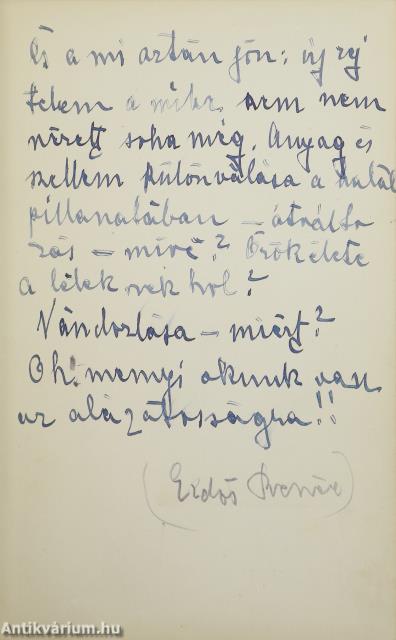 És a mi aztán jön: új rej
telem a mibe senki nem
nézett soha még. Anyag és
szellem különválása a halál
pillanatában – átválto
zás – mivé? Örökélete
a léleknek hol?
Vándorlása – miért?
Oh! mennyi okunk van
az alázatosságra!!
(Erdős Renée)
Antikvárium.hu